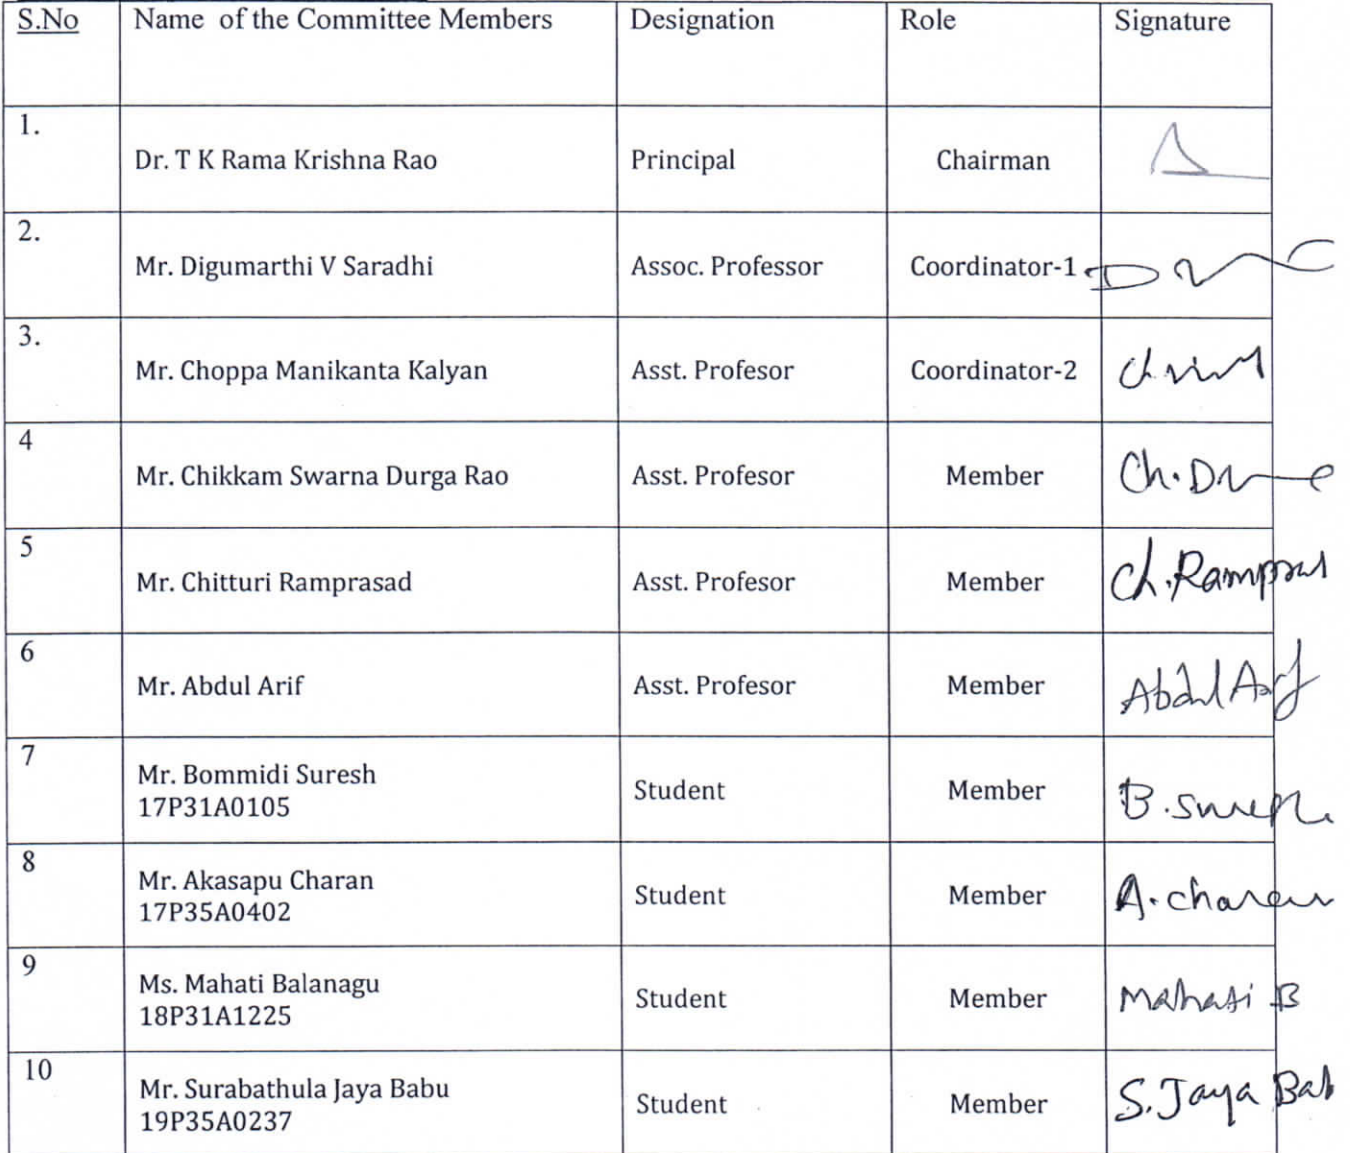 S.No Name of the Committee Members Designation Role Signature
1. Dr. T K Rama Krishna Rao Principal Chairman
2. Mr. Digumarthi V Saradhi Assoc. Professor Coordinator-1
3. Mr. Choppa Manikanta Kalyan Asst. Profesor Coordinator-2
4 Mr. Chikkam Swarna Durga Rao Asst. Profesor Member Ch.
5 Mr. Chitturi Ramprasad Asst. Profesor Member Ch.
6 Mr. Abdul Arif Asst. Profesor Member Abdul Arif
7 Mr. Bommidi Suresh Student Member B. Suresh
17P31A0105
8 Mr. Akasapu Charan Student Member A. charan
17P35A0402
9 Ms. Mahati Balanagu Student Member Mahati B
18P31A1225
10 Mr. Surabathula Jaya Babu Student Member S. Jaya Bab
19P35A0237